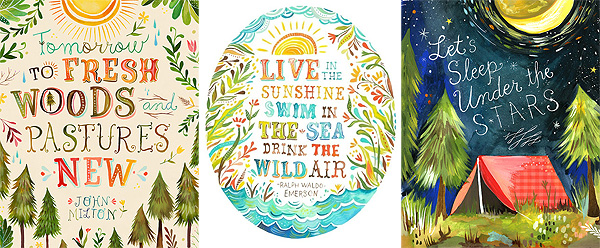 Tomorrow
TO FRESH
WOODS and
PASTURES
NEW
JOHN
MILTON
LIVE IN THE
SUNSHINE
SWIM IN
THE SEA
DRINK THE
WILD AIR
-RALPH WALDO-
EMERSON
Let's
Sleep
Under the
STARS